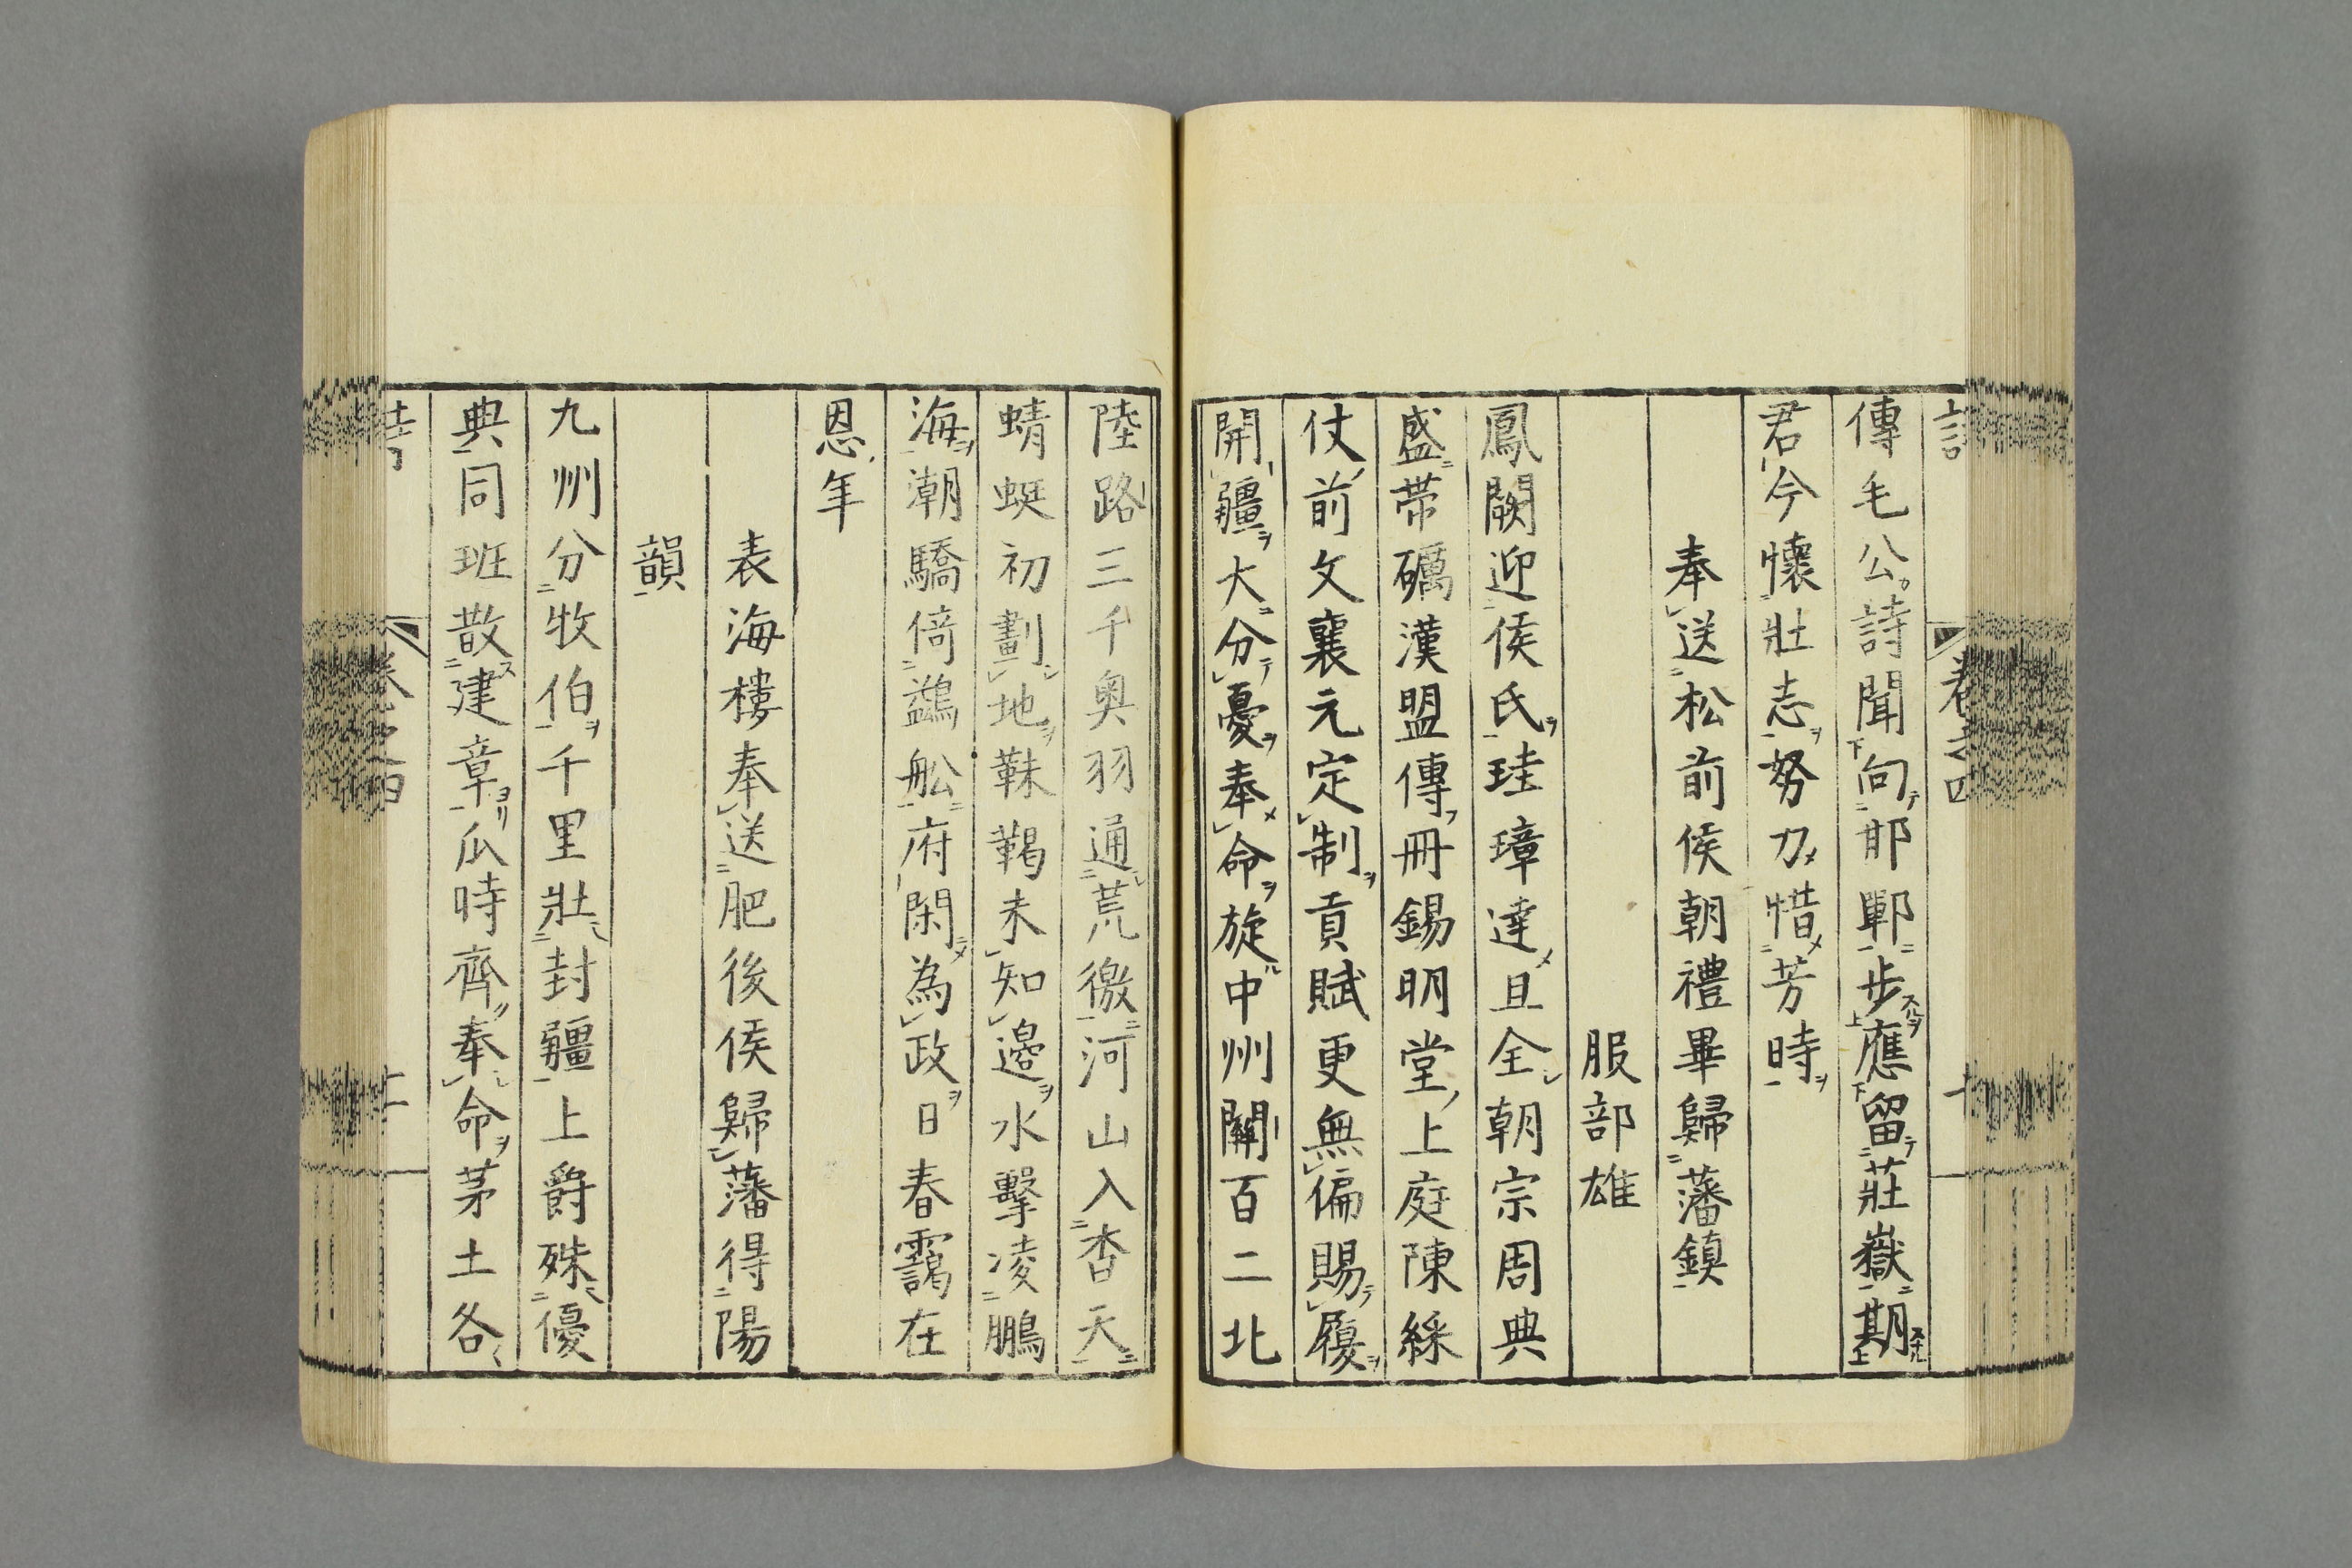 傳毛公詩聞向邯鄲步應留莊嶽期
君今懷壯志努力惜芳時
奉送松前侯朝禮畢歸藩鎮
服部雄
鳳闕迎侯氏珪璋達且全朝宗周典
盛帶礪漢盟傳冊錫明堂上庭陳綵
仗前文襄元定制貢賦更無偏賜履
開疆大分憂奉命旋中州關百二北
陸路三千奥羽通荒徼河山入杳天
蜻蜓初劃地靺鞨未知邊水擊凌鵬
海潮驕倚鷁舩府閑為政日春靄在
恩年
表海樓奉送肥後侯歸藩得陽
韻
九州分牧伯千里壯封疆上爵殊優
典同班散建章瓜時齊奉命茅土各
卷之四